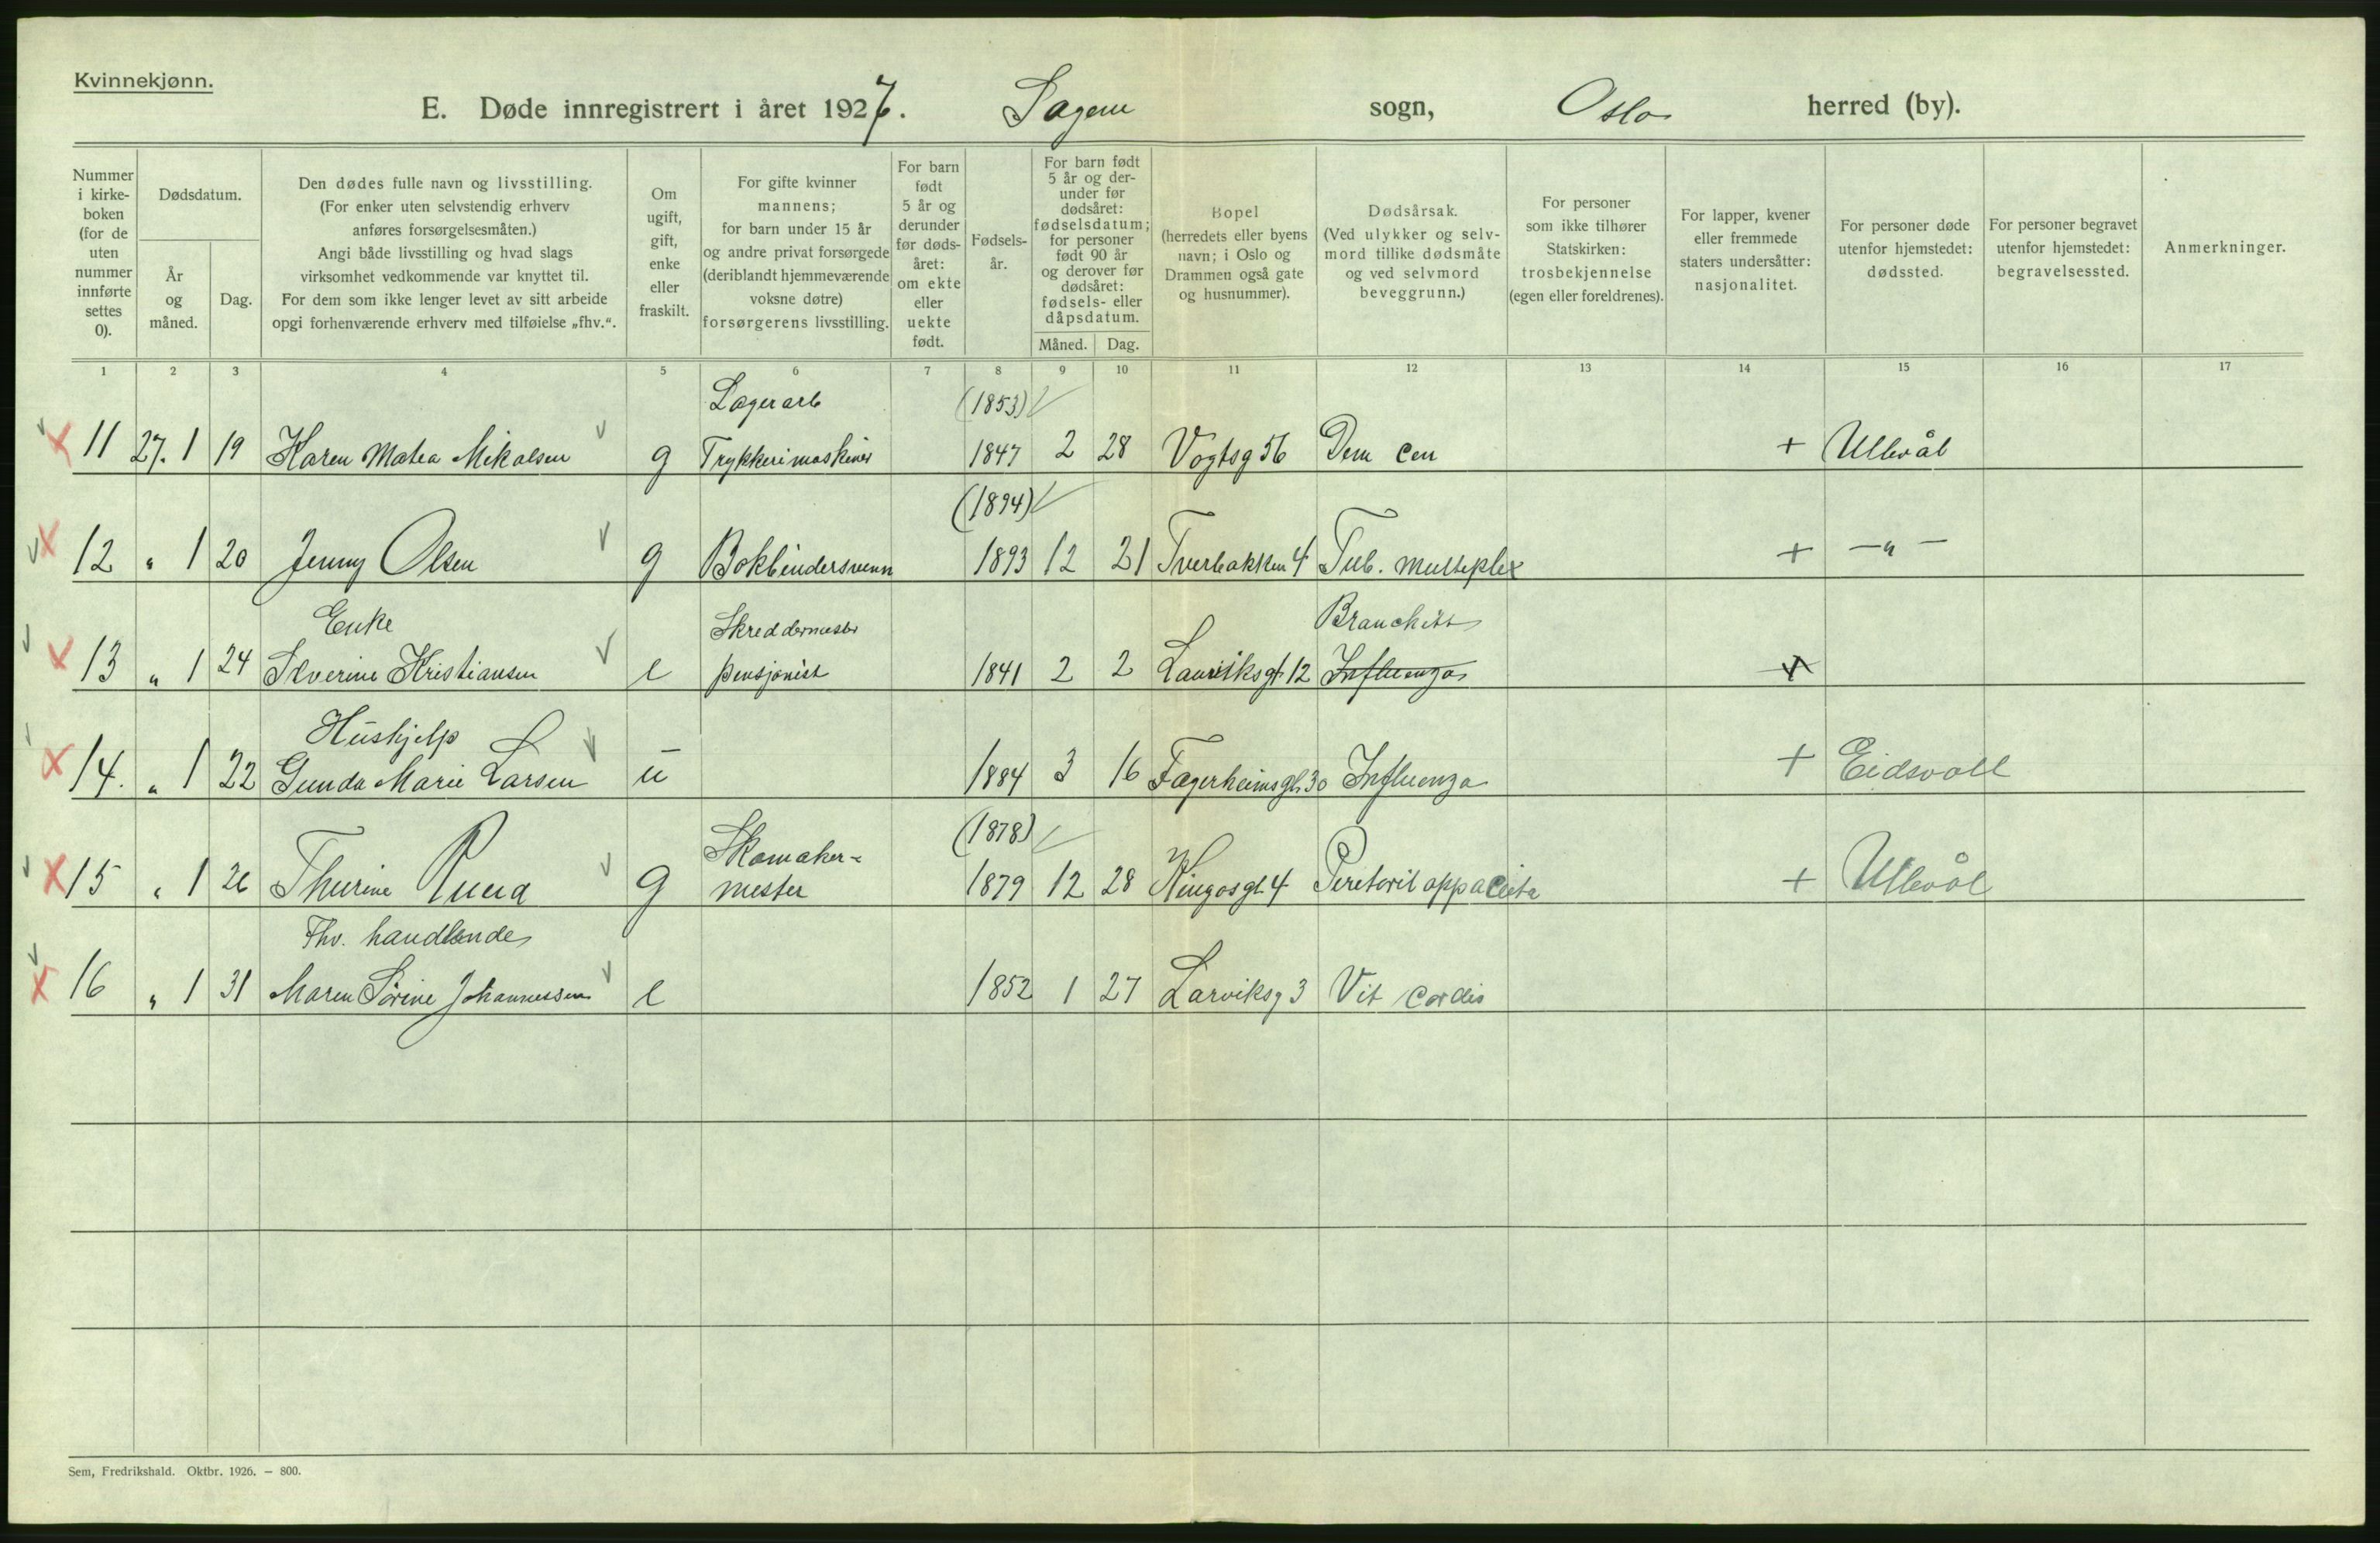 Kvinnekjønn.
E. Døde innregistrert i året 1927. Sagene sogn, Oslo herred (by).
Nummer i kirkeboken (for de uten nummer innførte settes 0).
Dødsdatum.
År og måned.
Dag.
Den dødes fulle navn og livsstilling.
(For enker uten selvstendig erhverv
anføres forsørgelsesmåten.)
Angi både livsstilling og hvad slags
virksomhet vedkommende var knyttet til.
For dem som ikke lenger levet av sitt arbeide
opgi forhenværende erhverv med tilføielse „fhv.“.
Om ugift, gift, enke eller fraskilt.
For gifte kvinner
mannens;
for barn under 15 år
og andre privat forsørgede
(deriblandt hjemmeværende
voksne døtre)
forsørgerens livsstilling.
For barn født 5 år og derunder før dødsåret: om ekte eller uekte født.
Fødselsår.
For barn født
5 år og derunder før
dødsåret:
fødselsdatum;
for personer
født 90 år
og derover før
dødsåret:
fødsels- eller
dåpsdatum.
Måned. Dag.
Bopel
(herredets eller byens
navn; i Oslo og
Drammen også gate
og husnummer).
Dødsårsak.
(Ved ulykker og selvmord tillike dødsmåte
og ved selvmord
beveggrunn.)
For personer
som ikke tilhører
Statskirken:
trosbekjennelse
(egen eller foreldrenes).
For lapper, kvener
eller fremmede
staters undersåtter:
nasjonalitet.
For personer døde
utenfor hjemstedet:
dødssted.
For personer begravet
utenfor hjemstedet:
begravelsessted.
Anmerkninger.
1 2 3 4 5 6 7 8 9 10 11 12 13 14 15 16 17
Lagerarb (1853)
11 27. 1 19 Karen Matea Mikalsen g Trykkerimaskinist 1847 2 28 Vogtsg 56 Dem sen + Ullevål
(1894)
12 " 1 20 Jenny Olsen g Bokbindersvenn 1893 12 21 Tverbakken 4 Tub. multiplex + -"-
Enke Skreddermester Bronchitt
13 " 1 24 Severine Kristiansen e pensjonist 1841 2 2 Larviksgt 12 Influenza
Hushjelp
14. " 1 22 Gunda Marie Larsen u 1884 3 16 Fagerheimsgt. 30 Influenza + Eidsvoll
Skomaker- (1878)
15 " 1 26 Thurine Ruud g mester 1879 12 28 Kingosgt 4 + Ullevål
Fhv. handlende
16 " 1 31 Maren Sørine Johannessen e 1852 1 27 Larviksg 3 Vit cordis
Sem, Fredrikshald. Oktbr. 1926. – 800.